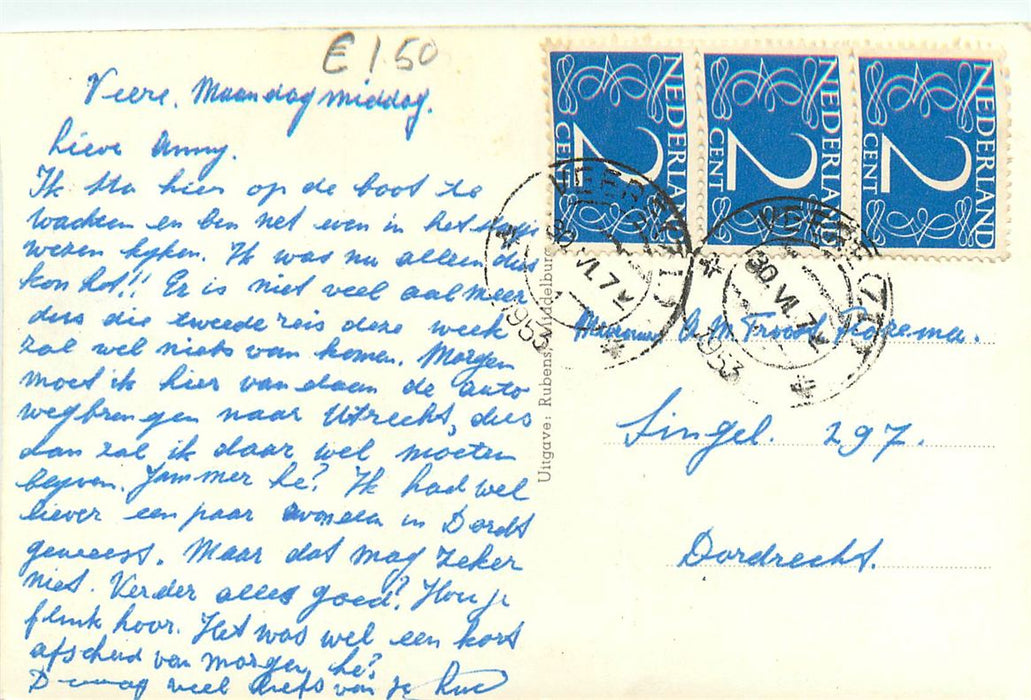 € 1.50
Veere, Maandag middag.
Lieve Anny.
Ik sta hier op de boot te
wachten en ben net even in het
wezen kijken. Ik was nu alleen dus
kon het!! Er is niet veel aal meer
dus die tweede reis deze week
zal wel niets van komen. Morgen
moet ik hier vandaan de auto
wegbrengen naar Utrecht, dus
dan zal ik daar wel moeten
blijven. Jammer he? Ik had wel
liever een paar avonden in Dordt
geweest. Maar dat mag zeker
niet. Verder alles goed? Hou je
flink hoor. Het was wel een kort
afscheid van morgen, he?
veel liefs van je
Uitgave: Rubens, Middelburg
NEDERLAND
2
CENT
NEDERLAND
2
CENT
NEDERLAND
2
CENT
VEERE
30.VI.7
1953
VEERE
30.VI.7
1953
Mevrouw A.M. Troost
Singel. 297.
Dordrecht.